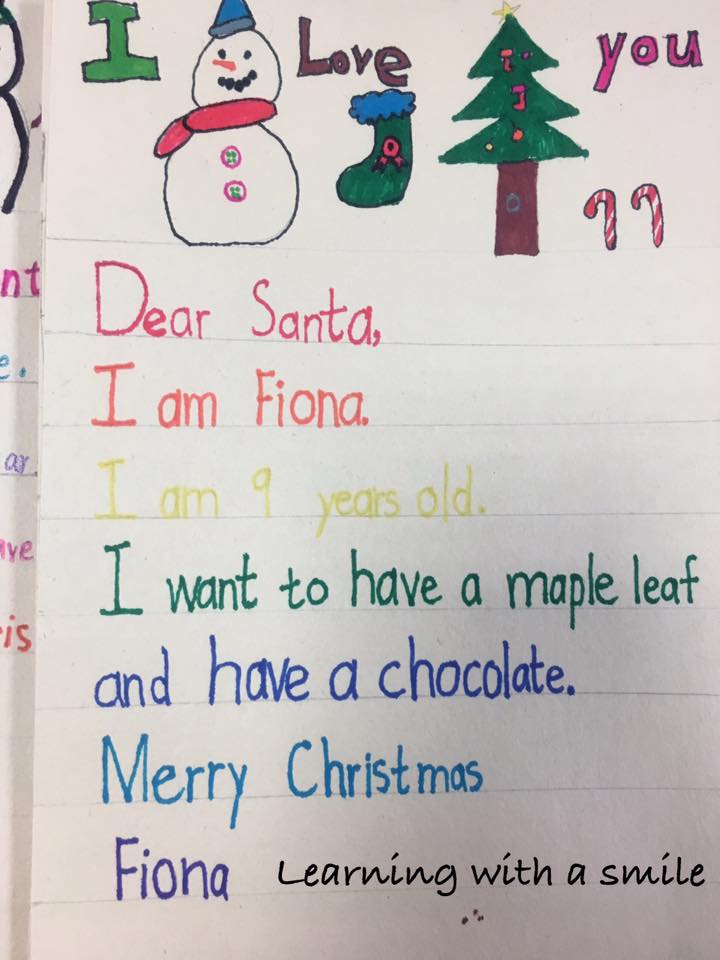 I Love you
Dear Santa,
I am Fiona.
I am 9 years old.
I want to have a maple leaf
and have a chocolate.
Merry Christmas
Fiona
Learning with a smile
nt
e.
ar
ave
ris